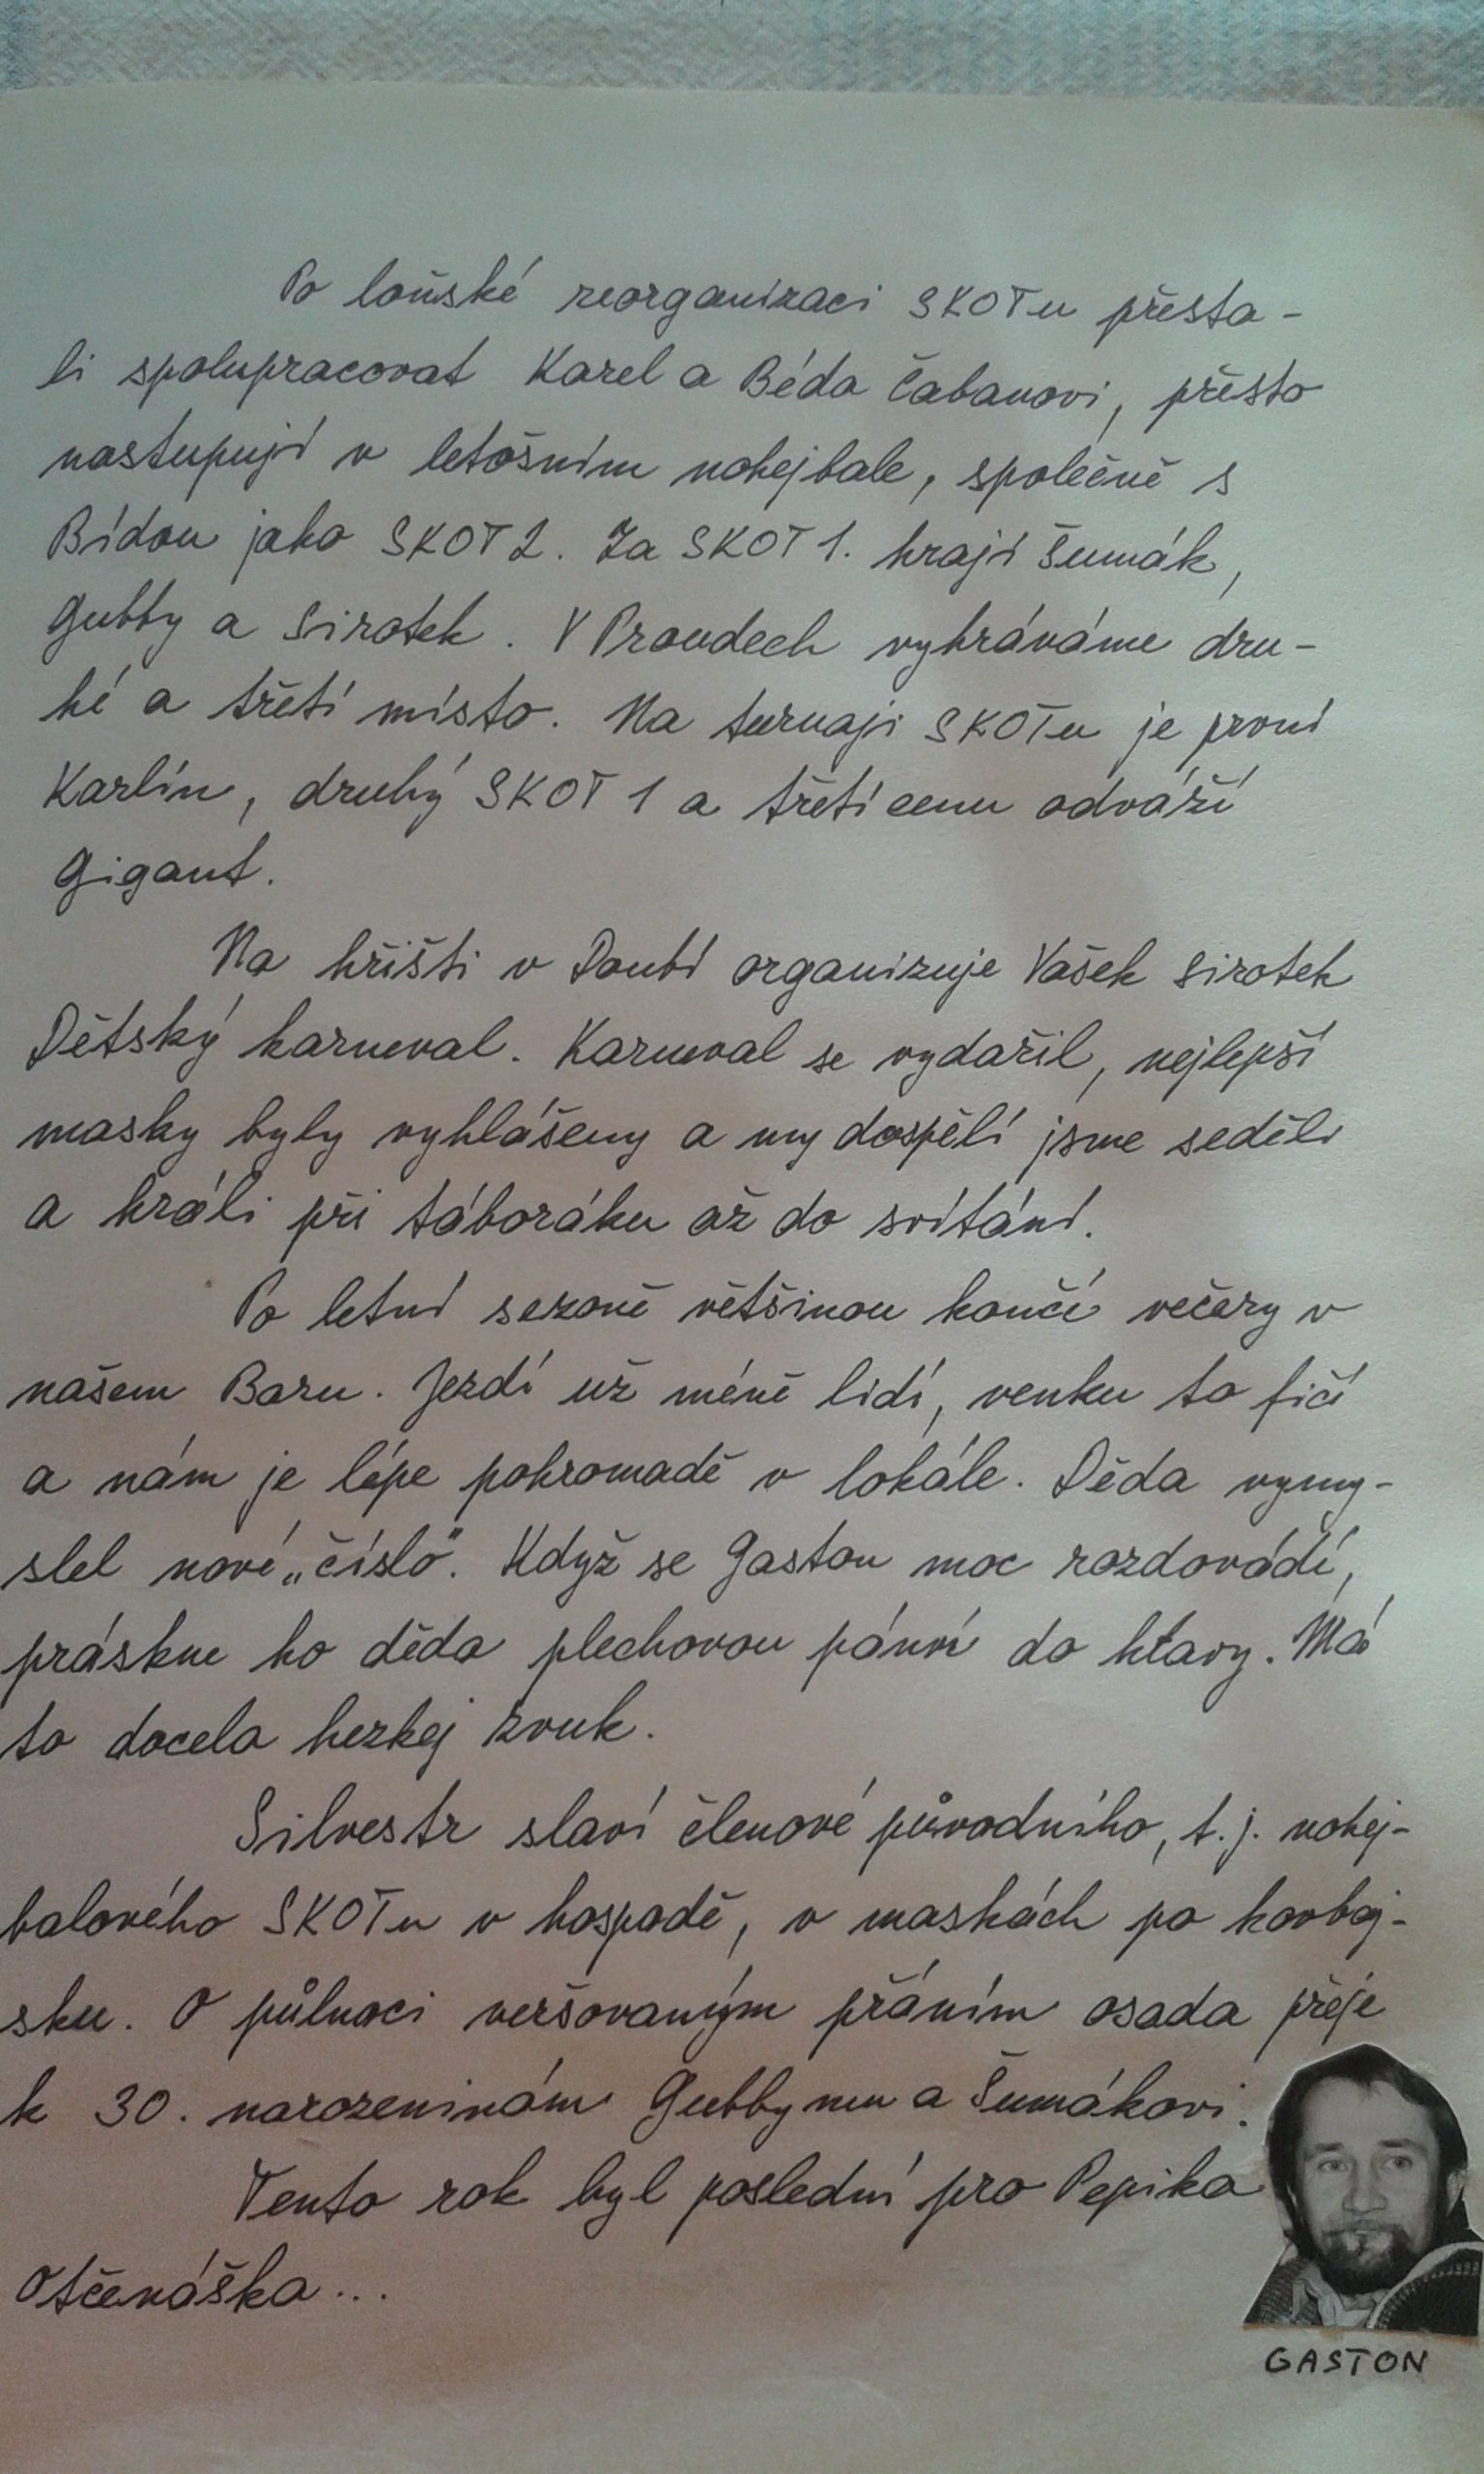 Po loňské reorganizaci SKOTu přesta-
li spolupracovat Karel a Béda Čabanovi, přesto
nastupují v letošním nohejbale, společně s
Bídou jako SKOT 2. Za SKOT 1. hrají Šumák,
Gubby a Sirotek. V Proudech vyhráváme dru-
hé a třetí místo. Na turnaji SKOTu je první
Karlín, druhý SKOT 1 a třetí cenu odváží
Gigant.
Na hřišti v Doubí organizuje Vašek Sirotek
Dětský karneval. Karneval se vydařil, nejlepší
masky byly vyhlášeny a my dospělí jsme seděli
a hráli při táboráku až do svítání.
Po letní sezoně většinou končí večery v
našem Baru. Jezdí už méně lidí, venku to fičí
a nám je lépe pohromadě v lokále. Děda vymy-
slel nové „číslo". Když se Gaston moc rozdovádí,
práskne ho děda plechovou pánví do hlavy. Má
to docela hezkej zvuk.
Silvestr slaví členové původního, t.j. nohej-
balového SKOTu v hospodě, v maskách po kovboj-
sku. O půlnoci veršovaným přáním osada přeje
k 30. narozeninám Gubbymu a Šumákovi.
Tento rok byl poslední pro Pepika
Otčenáška...
GASTON